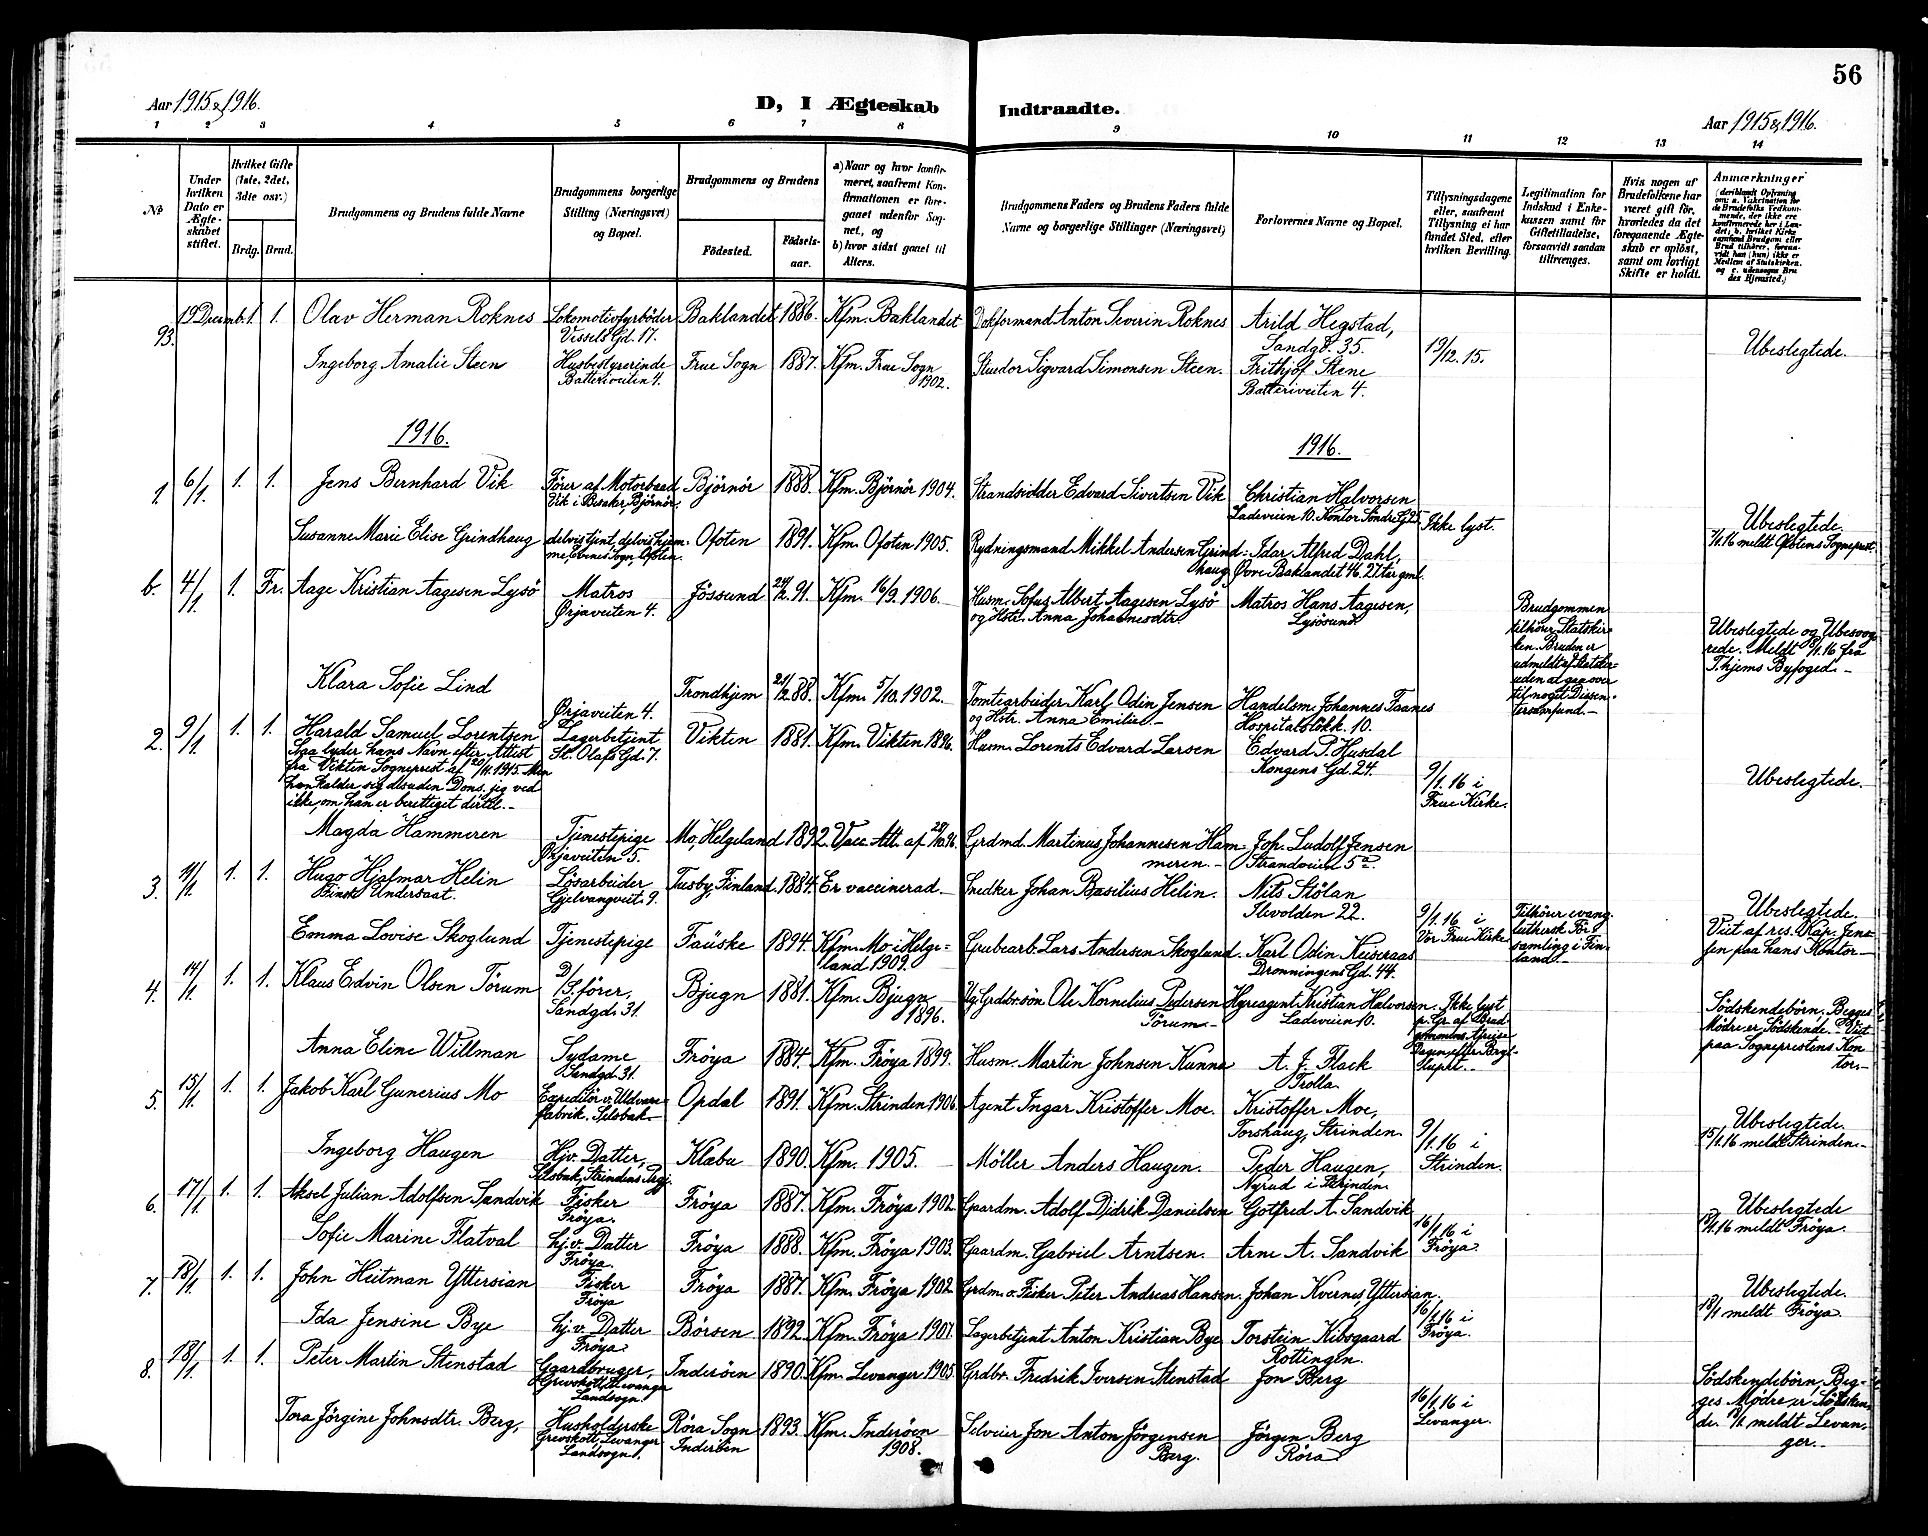 56
Aar 1915 & 1916.
D, I Ægteskab Indtraadte.
Aar 1915 & 1916.
1 2 3 4 5 6 7 8 9 10 11 12 13 14
No
Under hvilken Dato er Ægteskabet stiftet.
Hvilket Gifte (1ste, 2det, 3die osv.)
Brdg. Brud.
Brudgommens og Brudens fulde Navne
Brudgommens borgerlige Stilling (Næringsvei) og Bopæl.
Brudgommens og Brudens
Födested. Födsels-aar.
a) Naar og hvor konfirmeret, saafremt Konfirmationen er foregaaet udenfor Sognet, og
b) hvor sidst gaaet til Alters.
Brudgommens Faders og Brudens Faders fulde Navne og borgerlige Stillinger (Næringsvei)
Forlovernes Navne og Bopæl.
Tillysningsdagene eller, saafremt Tillysning ei har fundet Sted, efter hvilken Bevilling.
Legitimation for Indskud i Enkekassen samt for Giftetilladelse, forsaavidt saadan tiltrænges.
Hvis nogen af Brudefolkene har været gift för, hvorledes da det foregaaende Ægteskab er oplöst, samt om lovligt Skifte er holdt.
Anmærkninger
(deriblandt Oplysning om: a. Vakcination for de Brudefolks Vedkommende, der ikke ere konfirmerede her i Landet; b. hvilket Kirkesamfund Brudgom eller Brud tilhörer, forsaavidt han (hun) ikke er Medlem af Statskirken. og c. udensogns Brudes Hjemsted.)
93. 19 Decemb. 1. 1. Olav Herman Roknes Lokomotivfyrböder Baklandet 1886. Kfm. Baklandet Dokformand Anton Severin Roknes Arild Hegstad,
Vissels Gd. 17. Sandgd. 35. 19/12. 15. Ubeslegtede.
Ingeborg Amalie Steen Husbestyrerinde Frue Sogn 1887. Kfm. Frue Sogn Stuedor Sigvard Simonsen Steen. Frithjof Stene
Batteriveiten 4. 1902. Batteriveiten 4.
1916. 1916.
1. 6/1. 1. 1. Jens Bernhard Vik Förer af Motorbaad Björnör 1888. Kfm. Björnör 1904. Strandsidder Edvard Sivertsen Vik Christian Halvorsen
Vik i Besaker, Björnör. Ladeveien 10. Kontor Söndre G. 25 Ikke lyst. Ubeslegtede.
Susanne Marie Elise Grindhaug delvis tjent, delvis hjemme, Evenes Sogn, Ofoten Ofoten 1891. Kfm. Ofoten 1905. Rydningsmand Mikkel Andersen Grindhaug Idar Alfred Dahl,
Övre Baklandet 46. 27 Aar gml. 7/1.16 meldt Ofotens Sogneprest.
b. 4/1 1. Fr. Aage Kristian Aagesen Lysö Matros Jössund 24/2. 91. Kfm. 16/9. 1906. Husm. Sofus Albert Aagesen Lysö Matros Hans Aagesen,
Örjaveiten 4. og Hstr. Anna Johannesdtr. Lysösund.
Brudgommen tilhörer Statskirken. Bruden er udmeldt af Statskir- uden at gaa over til noget Dissentersamfund.
Ubeslegtede og Ubesvogrede. Meldt /1.16 fra T.hjems Byfoged.
Klara Sofie Lind Trondhjem 21/12. 88. Kfm. 5/10. 1902. Tomtearbeider Karl Odin Jensen Handelsm. Johannes Faanes
Örjaveiten 4. og Hstr. Anna Emilie. Hospitalslökk. 10.
2. 9/1 1. 1. Harald Samuel Lorentsen Lagerbetjent Vikten 1881. Kfm. Vikten 1896. Husm. Lorents Edvard Larsen Edvard P. Husdal
St. Olafs Gd. 7. Kongens Gd. 24. 9/1. 16 i Frue Kirke. Ubeslegtede.
Saa lyder hans Navn efter Attest
fra Vikten Sogneprest af 20/11. 1915. Men
han kalder sig desuden Dons, jeg ved
ikke, om han er berettiget dertil.
Magda Hammeren Tjenestepige Mo, Helgeland 1892. Vacc. Att. af 29/10.96. Grdmd. Martinus Johannesen Hammeren. Joh. Ludolf Jensen
Örjaveiten 5. Strandveien 5a.
3. 11/1 1. 1. Hugo Hjalmar Helin Lösarbeider Tusby, Finland. 1884. Er vaccinerad. Snedker Johan Basilius Helin. Nils Stölan
Finsk Undersaat. Gjelvangveit. 9. Ilevolden 22. 9/1. 16 i Vor Frue Kirke Tilhörer evang. luthersk Församling i Finland. Ubeslegtede. Viet af res. Kap. Jensen paa hans Kontor
Emma Lovise Skoglund Tjenestepige Fauske 1894. Kfm. Mo i Helgeland 1909. Grubearb. Lars Andersen Skoglund. Karl Odin Keiseraas
Dronningens Gd. 44.
4. 14/1 1. 1. Klaus Edvin Olsen Törum D/S. förer, Bjugn 1881. Kfm. Bjugn 1896. Ug. Grdbr.sön Ole Kornelius Pedersen Törum Hyreagent Kristian Halvorsen.
Sandgd. 31. Ladeveien 10. Ikke lyst p. Gr. af Brudgommens Afreise Dagen efter Bryllupet. Södskendebörn, Begges Mödre er Södskende. Viet paa Sogneprestens Kontor.
Anna Eline Willman Sydame Fröya 1884. Kfm. Fröya 1899. Husm. Martin Johnsen Kunna A. J. Flack
Sandgd. 31. Trolla.
5. 15/1. 1. 1. Jakob Karl Gunerius Mo Expeditör v. Uldvarefabrik. Selsbak. Opdal 1891. Kfm. Strinden 1906. Agent Ingar Kristoffer Moe. Kristoffer Moe,
Torshaug, Strinden. 9/1.16 i Strinden. Ubeslegtede. 15/1.16 meldt Strinden.
Ingeborg Haugen Hjv. Datter, Klæbu 1890. Kfm. 1905. Möller Anders Haugen. Peder Haugen,
Selsbak, Strindens Prgj. Nyrud i Strinden.
6. 17/1 1. 1. Aksel Julian Adolfsen Sandvik Fisker Fröya 1887. Kfm. Fröya 1902. Gaardm. Adolf Didrik Danielsen Gotfred A. Sandvik
Fröya. 16/1.16 i Fröya. Ubeslegtede 18/1.16 meldt Fröya.
Sofie Marine Flatval hj.v. Datter Fröya 1888. Kfm. Fröya 1903. Gaardm. Gabriel Arntsen. Arne A. Sandvik
Fröya.
7. 18/1 1. 1. John Heitman Yttersian Fisker Fröya 1887. Kfm. Fröya 1902. Grdm. o. Fisker Peter Andreas Hansen. Johan Kvernes, Yttersian.
Fröya 16/1.16 i Fröya. Ubeslegtede. 18/1 meldt Fröya.
Ida Jensine Bye hj.v. Datter Börsen 1892. Kfm. Fröya 1907. Lagerbetjent Anton Kristian Bye Torstein Kibsgaard
Fröya. Rottingen.
8. 18/1 1. 1. Peter Martin Stenstad Gaardbruger, Inderöen 1890. Kfm. Levanger 1905. Grdbr. Fredrik Iversen Stenstad Jon Berg
Grevskott, Levanger Landsogn. 16/1.16 i Levanger. Södskendebörn, Begges Mödre er Södskende. /1 meldt Levanger.
Tora Jörgine Johnsdtr. Berg, Husholderske Röra Sogn 1893. Kfm. Inderöen Selveier Jon Anton Jörgensen Jörgen Berg
Grevskott, Levanger Landsogn. Inderöen 1908. Berg. Röra.